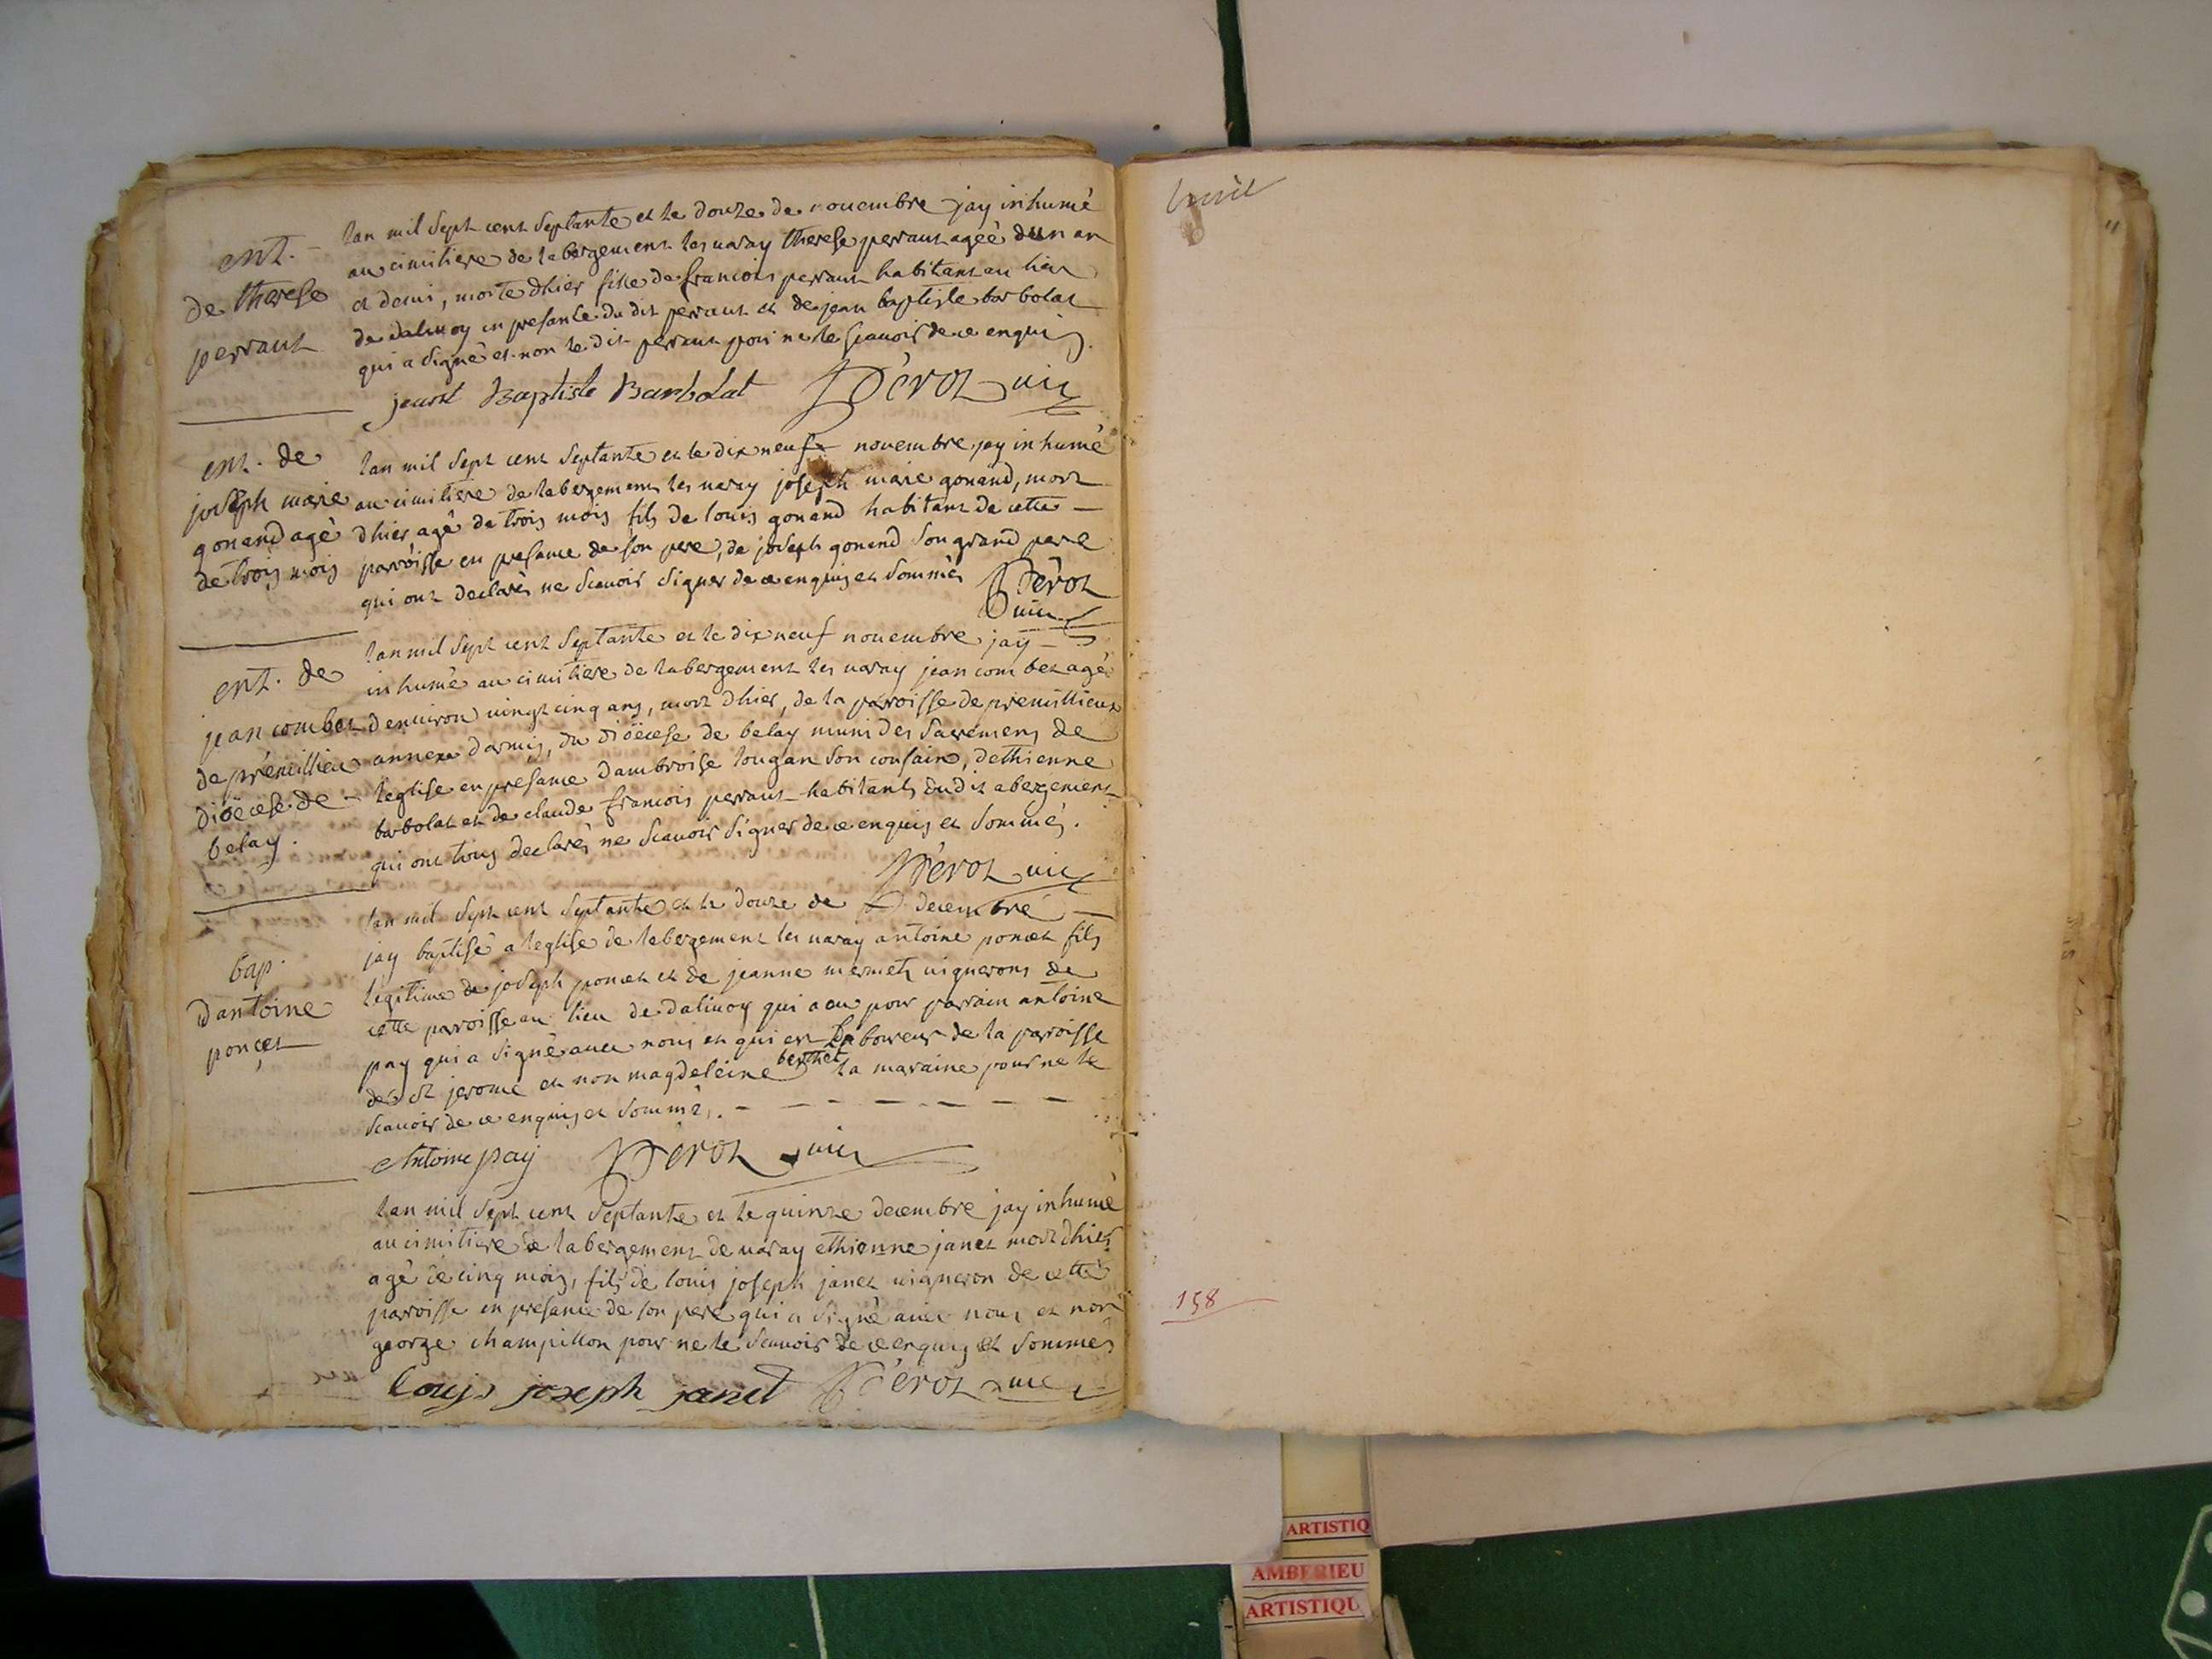 ent. -
de therese
perraut
lan mil sept cent septante et le douze de novembre jay inhumé
au cimitiere de labergement les varay therese perraut agéé dun an
et demi, morte dhier fille de francois perraut habitant au lieu
de dalivoy en presance du dit perraut et de jean baptiste barbolat
qui a signé et non le dit perraut pour ne le scavoir de ce enquis.
jeant Baptiste Barbolat Pérot vic
ent. de
joseph marie
gonand agé
de trois mois
lan mil sept cent septante et le dix neuf novembre jay inhumé
au cimitiere de labergement les varay joseph marie gonand, mort
dhier, agé de trois mois fils de louis gonand habitant de cette -
parroisse en presance de son pere, de joseph gonand son grand pere
qui ont declarés ne scavoir signer de ce enquis et sommés Pérot
vic
ent. de
jean combet
de prémillieu
dioëcese de -
belay.
lan mil sept cent septante et le dix neuf novembre jay -
inhumé au cimitiere de labergement les varay jean combet agé
denviron vingt cinq ans, mort dhier, de la parroisse de premillieux
annexe darmis, du dioëcese de belay muni des sacremens de
leglise en presance dambroise lougan son cousain, dethienne
barbolat et de claude francois perraut habitants dudit abergement
qui ont tous declarés ne scavoir signer de ce enquis et sommés.
Pérot vic
bap.
dantoine
ponçet
lan mil sept cent septante et le douze de decembre -
jay baptisé a leglise de labergement les varay antoine poncet fils
legitime de joseph poncet et de jeanne mermet vignerons de
cette parroisse au lieu de dalivoy qui a eu pour parrain antoine
pay qui a signé avec nous et qui est laboureur de la parroisse
de st jerome et non magdeleine berthet la maraine pour ne le
scavoir de ce enquis et sommés. - - - - - - - -
Antoine pay Pérot vic
lan mil sept cent septante et le quinze decembre jay inhumé
au cimitiere de labergement de varay ethienne janet mort dhier
agé de cinq mois, fils de louis joseph janet vigneron de cette
parroisse en presance de son pere qui a signé avec nous et non
george champillon pour ne le scavoir de ce enquis et sommés
Louis joseph janet Pérot vic
158
ARTISTIQ
AMBERIEU
ARTISTIQU